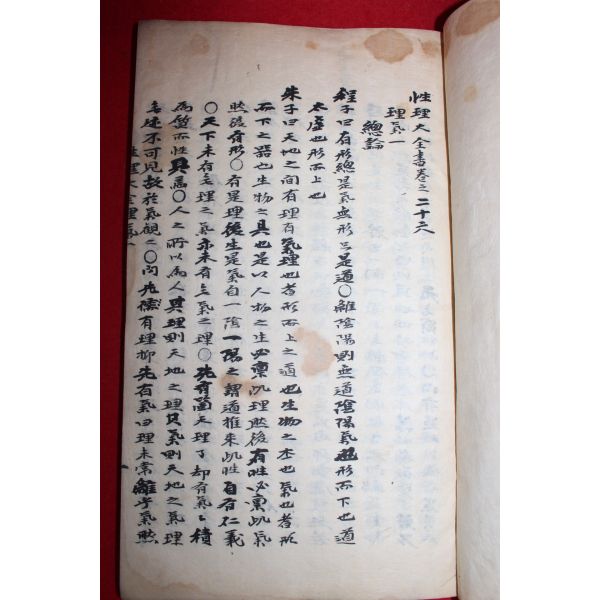 性理大全書卷之二十六
理氣一
總論
程子曰有形總是氣無形只是道〇離陰陽則無道陰陽氣也形而下也道
太虛也形而上也
朱子曰天地之間有理有氣理也者形而上之道也生物之本也氣也者形
而下之器也生物之具也是以人物之生必禀此理然後有性必禀此氣
然後有形〇有是理後生是氣自一陰一陽之謂道推來此性自有仁義
〇天下未有無理之氣亦未有無氣之理〇先有箇天理了却有氣氣積
為質而性具焉〇人之所以為人其理則天地之理其氣則天地之氣理
無迹不可見故於氣觀之〇問先儒有理抑先有氣曰理未嘗離乎氣然
性理大全理氣一